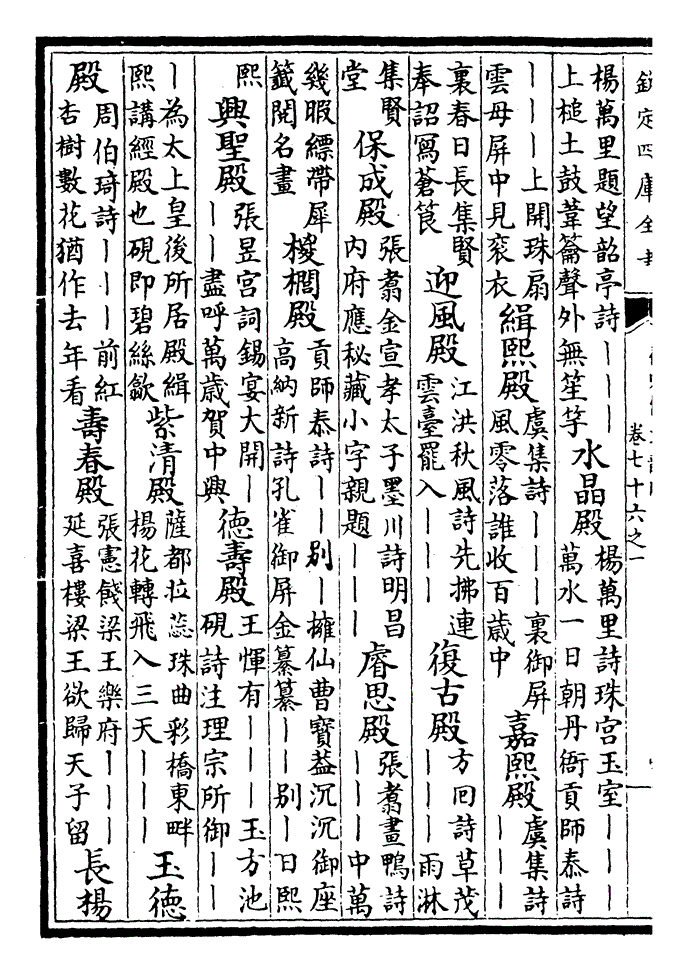 欽定四庫全書
卷七十六之一
楊萬里題望韶亭詩丨丨丨
上槌土鼓葦籥聲外無笙竽
水晶殿
楊萬里詩珠宮玉室丨丨丨
萬水一日朝丹衙貢師泰詩
丨丨丨上開珠扇
雲母屏中見衮衣
緝熙殿
虞集詩丨丨丨裏御屏
風零落誰收百歲中
嘉熙殿
虞集詩
丨丨丨
裏春日長集賢
奉詔寫蒼筤
迎風殿
江洪秋風詩先拂連
雲臺罷入丨丨丨
復古殿
方回詩草茂
丨丨丨雨淋
集賢
堂
保成殿
張翥金宣孝太子墨川詩明昌
内府應秘藏小字親題丨丨丨
睿思殿
張翥畫鴨詩
丨丨丨中萬
幾暇縹帶犀
籤閱名畫
椶櫚殿
貢師泰詩丨丨别丨擁仙曹寶葢沉沉御座
高納新詩孔雀御屏金纂纂丨丨别丨日熙
熙
興聖殿
張昱宮詞錫宴大開丨
丨丨盡呼萬歲賀中興
德壽殿
王惲有丨丨丨玉方池
硯詩注理宗所御丨丨
丨為太上皇後所居殿緝
熙講經殿也硯即碧絲歙
紫清殿
薩都拉蕊珠曲彩橋東畔
楊花轉飛入三天丨丨丨
玉德
殿
周伯琦詩丨丨丨前紅
杏樹數花猶作去年看
壽春殿
張憲餞梁王樂府丨丨丨
延喜樓梁王欲歸天子留
長楊